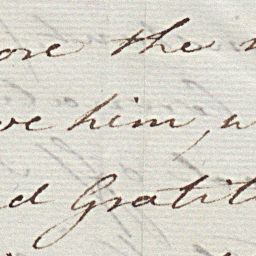 ore the
ve him,
d Gratit